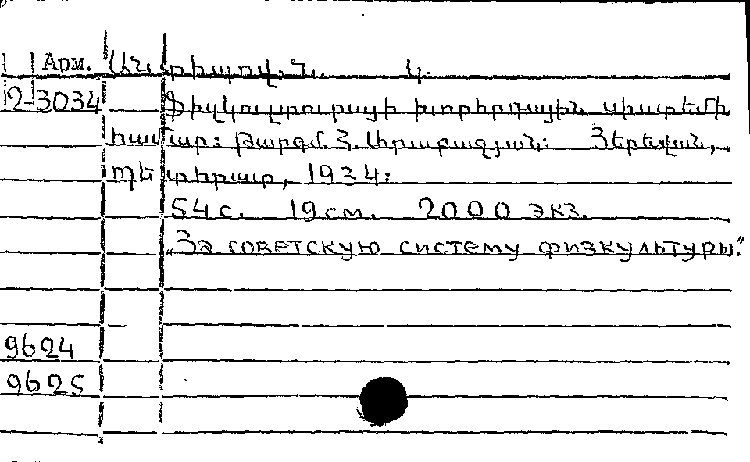 Арм. Անտիպով. Ն. Կ.
2-3034 Ֆիզկուլտուրայի խորհրդային սիստեմի
համար: Թարգմ. Հ. Միրաբազյան: Յերեվան,
Պետհրատ, 1934:
54 с. 19 см. 2000 экз.
„За советскую систему физкультуры."
9624
9625